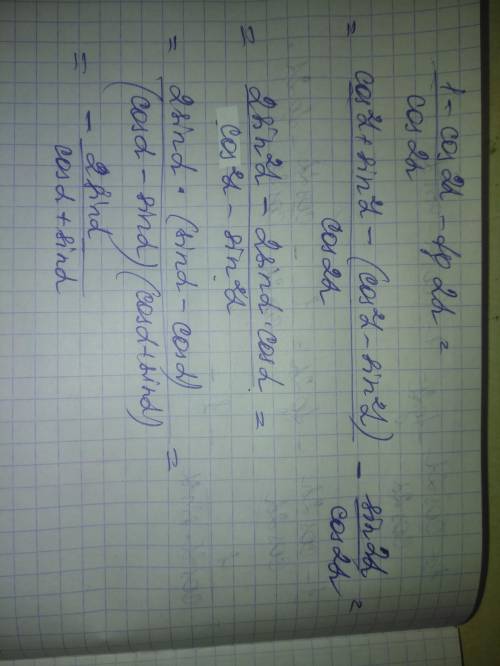 (1 - cos 2α)/(cos 2α) - tg 2α =
= (cos²α + sin²α - (cos²α - sin²α))/(cos 2α) - (sin 2α)/(cos 2α) =
= (2sin²α - 2sinα · cosα)/(cos²α - sin²α) =
= (2sinα · (sinα - cosα))/((cosα - sinα)(cosα + sinα)) =
= - (2sinα)/(cosα + sinα)